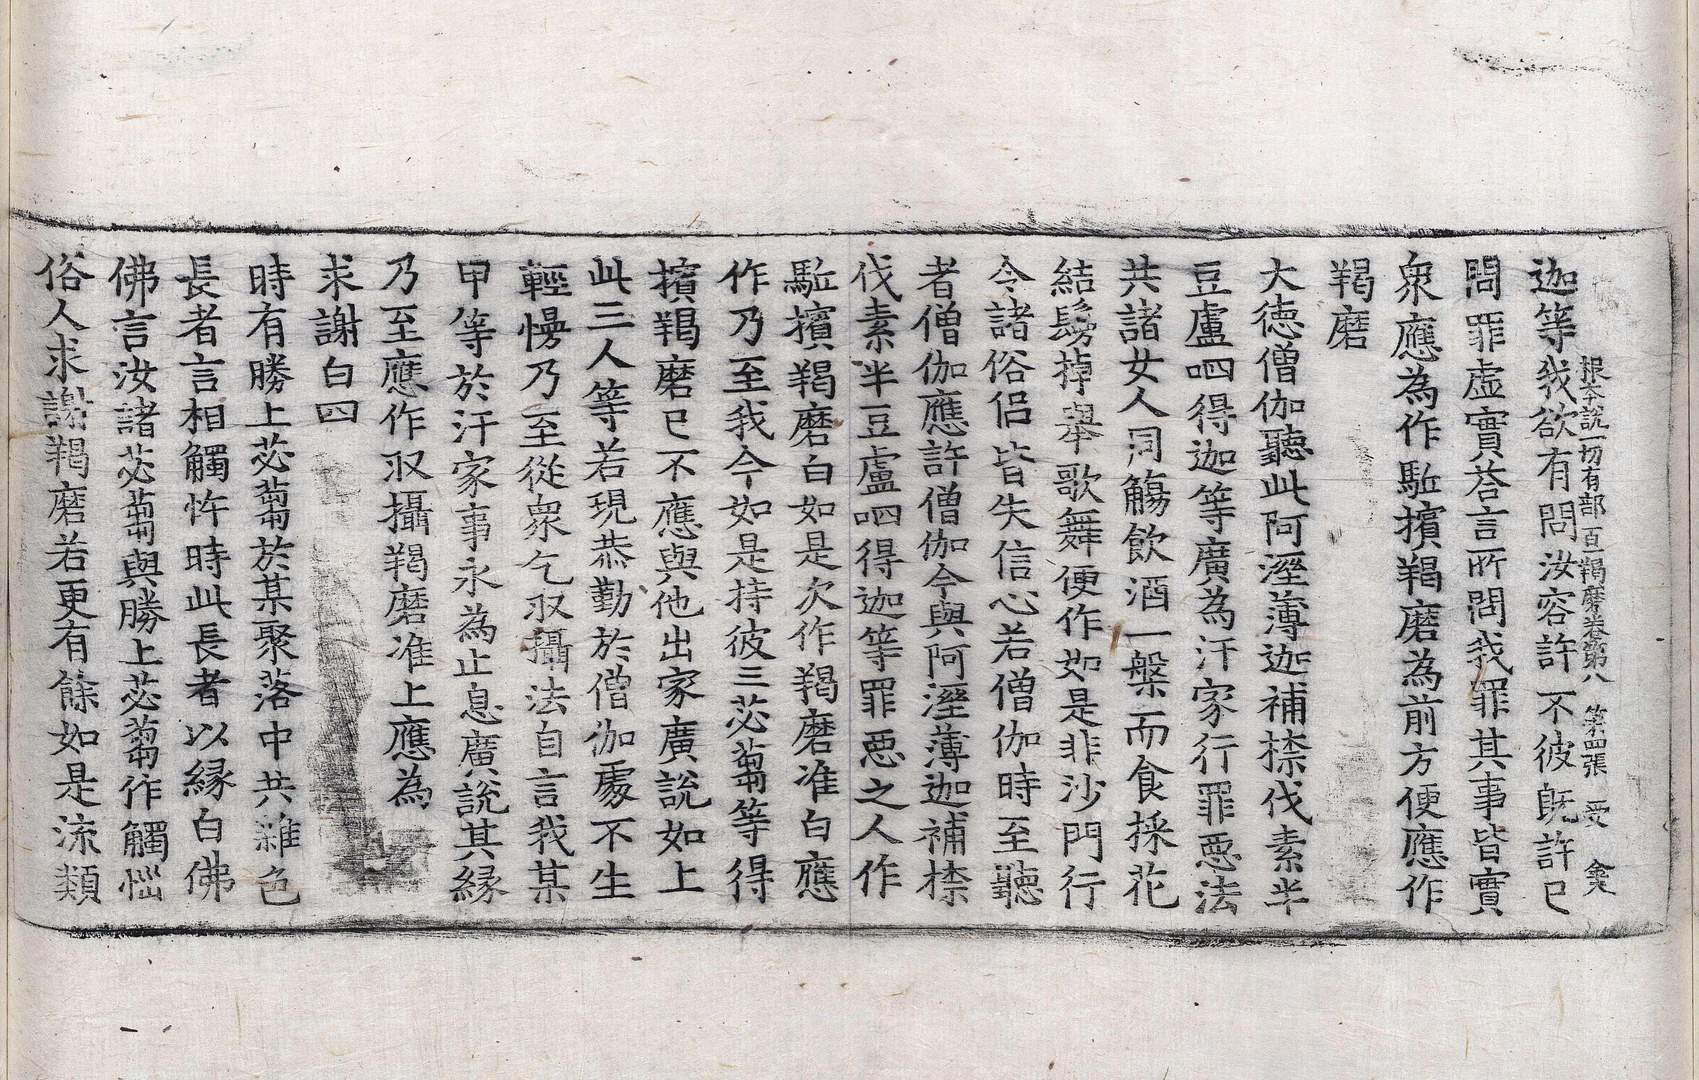 根本說一切有部百一羯磨卷第八 第四張 受
迦等我欲有問汝容許不彼旣許已
問罪虛實荅言所問我罪其事皆實
衆應為作駈擯羯磨為前方便應作
羯磨
大德僧伽聽此阿溼薄迦補捺伐素半
豆盧呬得迦等廣為汙家行罪惡法
共諸女人同觴飲酒一槃而食採花
結鬘掉舉歌舞便作如是非沙門行
令諸俗侶皆失信心若僧伽時至聽
者僧伽應許僧伽今與阿溼薄迦補捺
伐素半豆盧呬得迦等罪惡之人作
駈擯羯磨白如是次作羯磨准白應
作乃至我今如是持彼三苾蒭等得
擯羯磨已不應與他出家廣說如上
此三人等若現恭勤於僧伽處不生
輕慢乃至從衆乞収攝法自言我某
甲等於汙家事永為止息廣說其緣
乃至應作収攝羯磨准上應為
求謝白四
時有勝上苾蒭於某聚落中共雜色
長者言相觸忤時此長者以緣白佛
佛言汝諸苾蒭與勝上苾蒭作觸惱
俗人求謝羯磨若更有餘如是流類